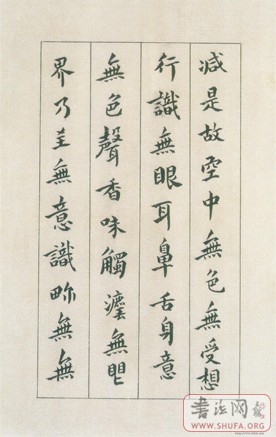 減是故空中無色無受想
行識無眼耳鼻舌身意
無色聲香味觸灋無眼
界乃至無意識畍無無
书法网
WWW.SHUFA.ORG